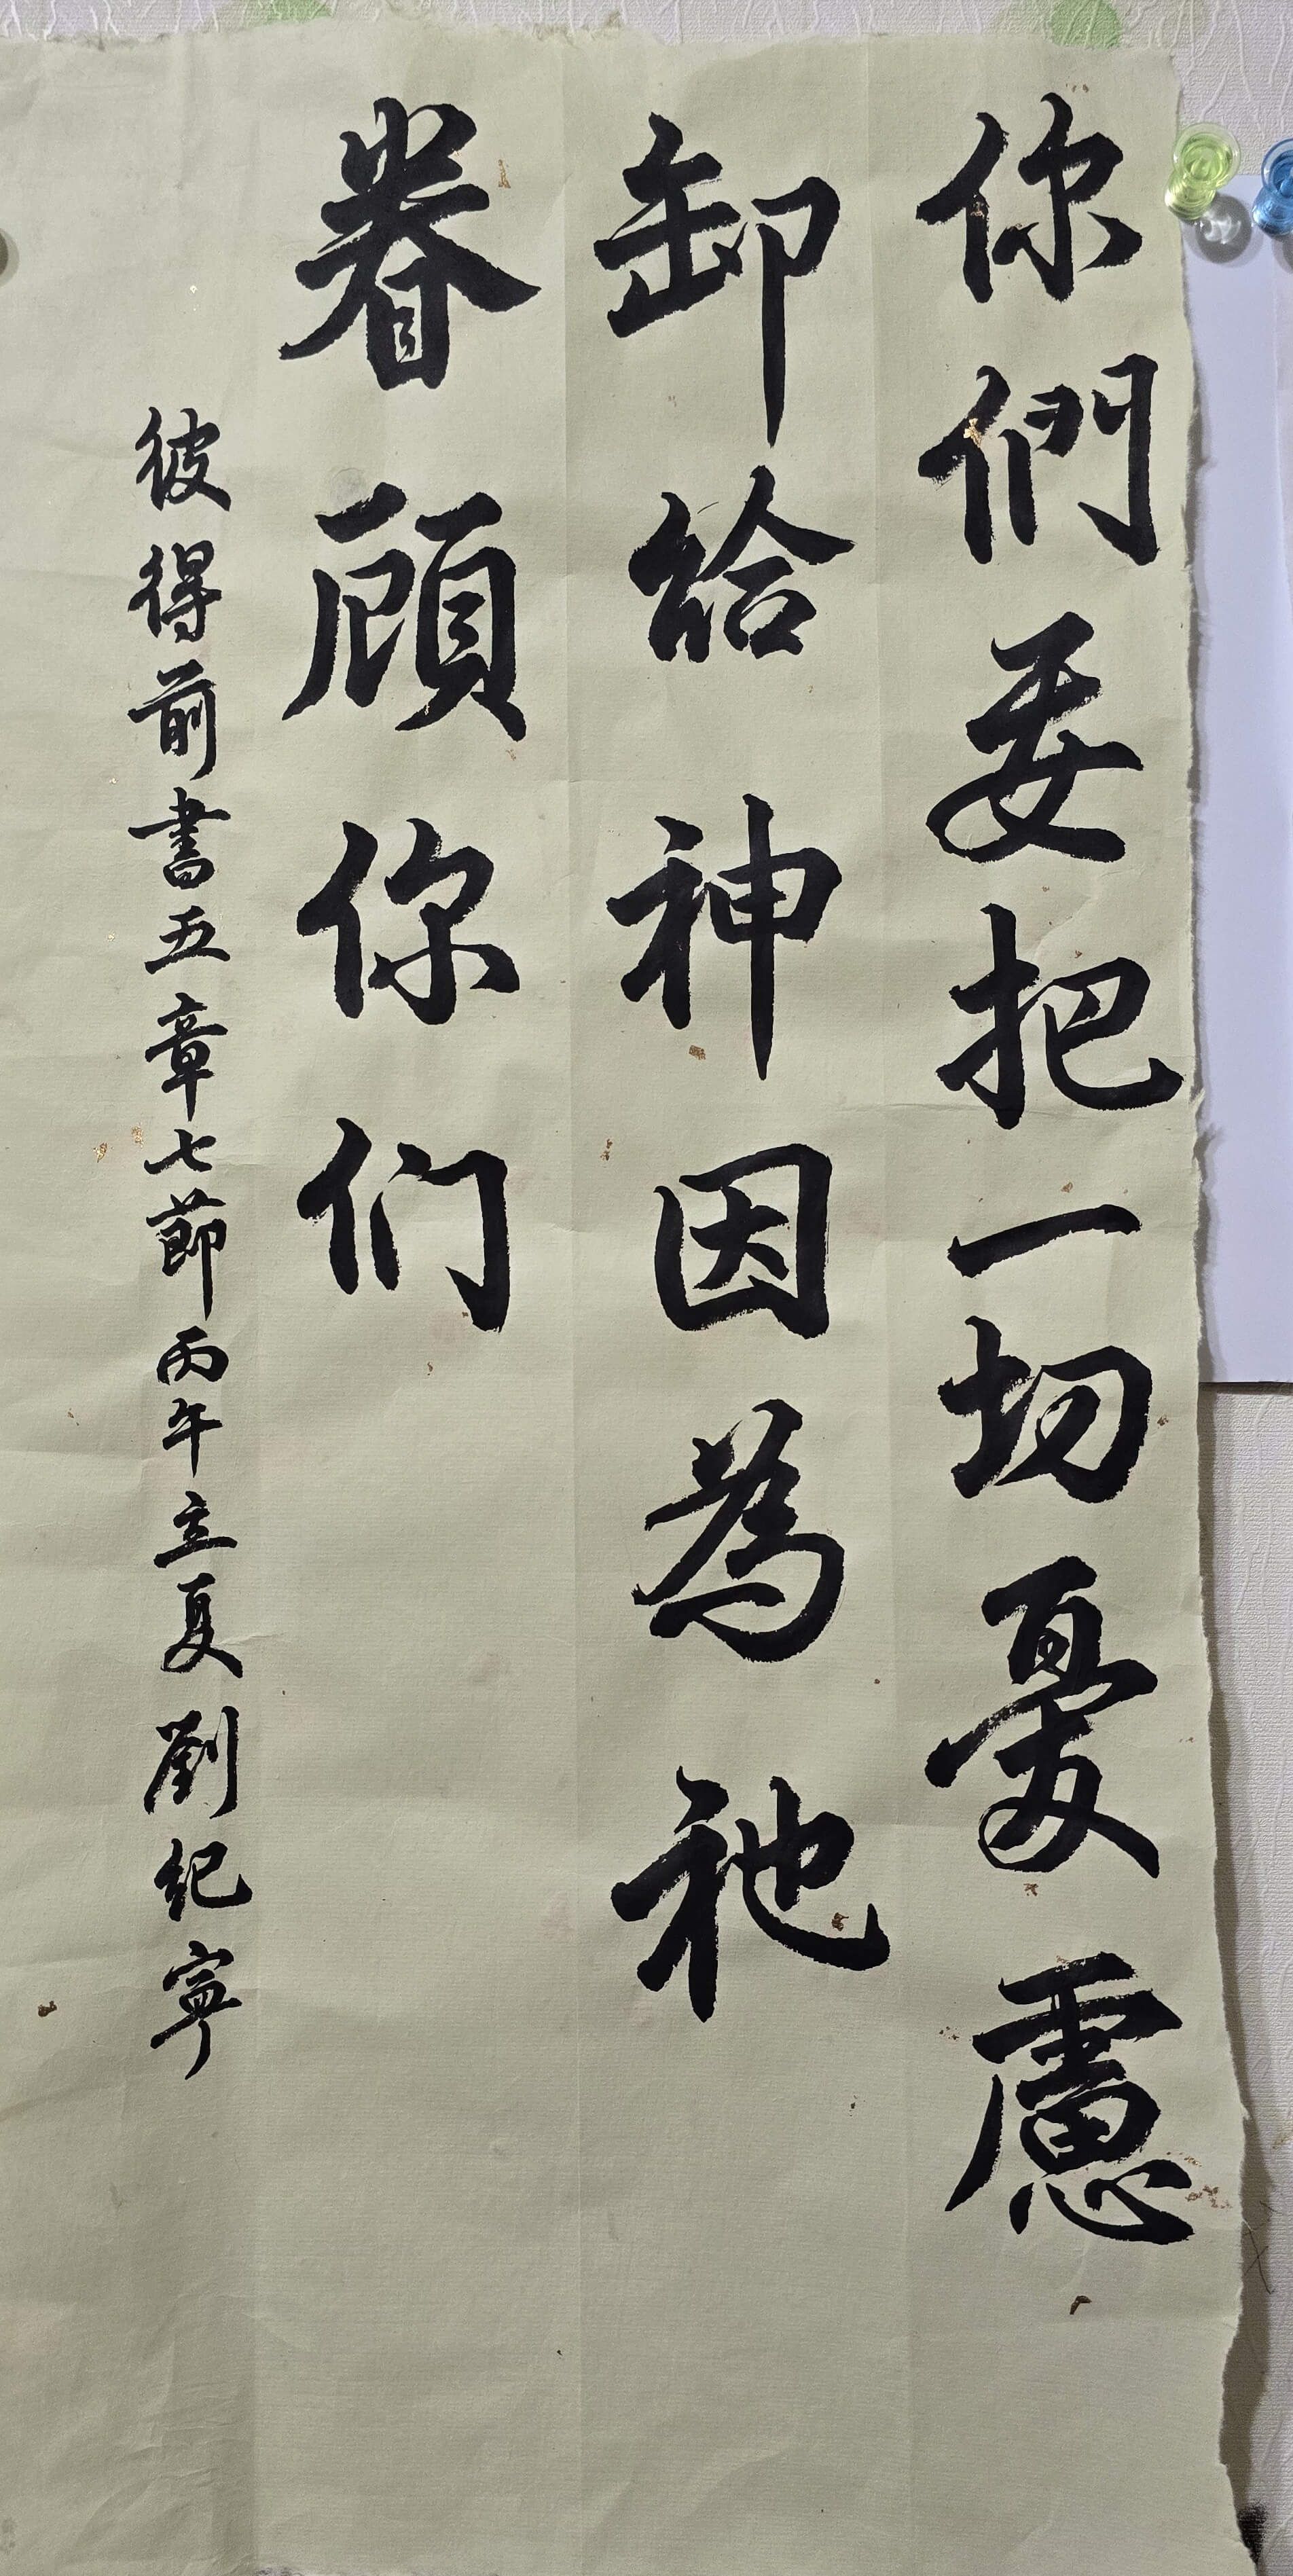 你們要把一切憂慮
卸給神因為祂
眷顧你们
彼得前書五章七節丙午立夏劉纪寧